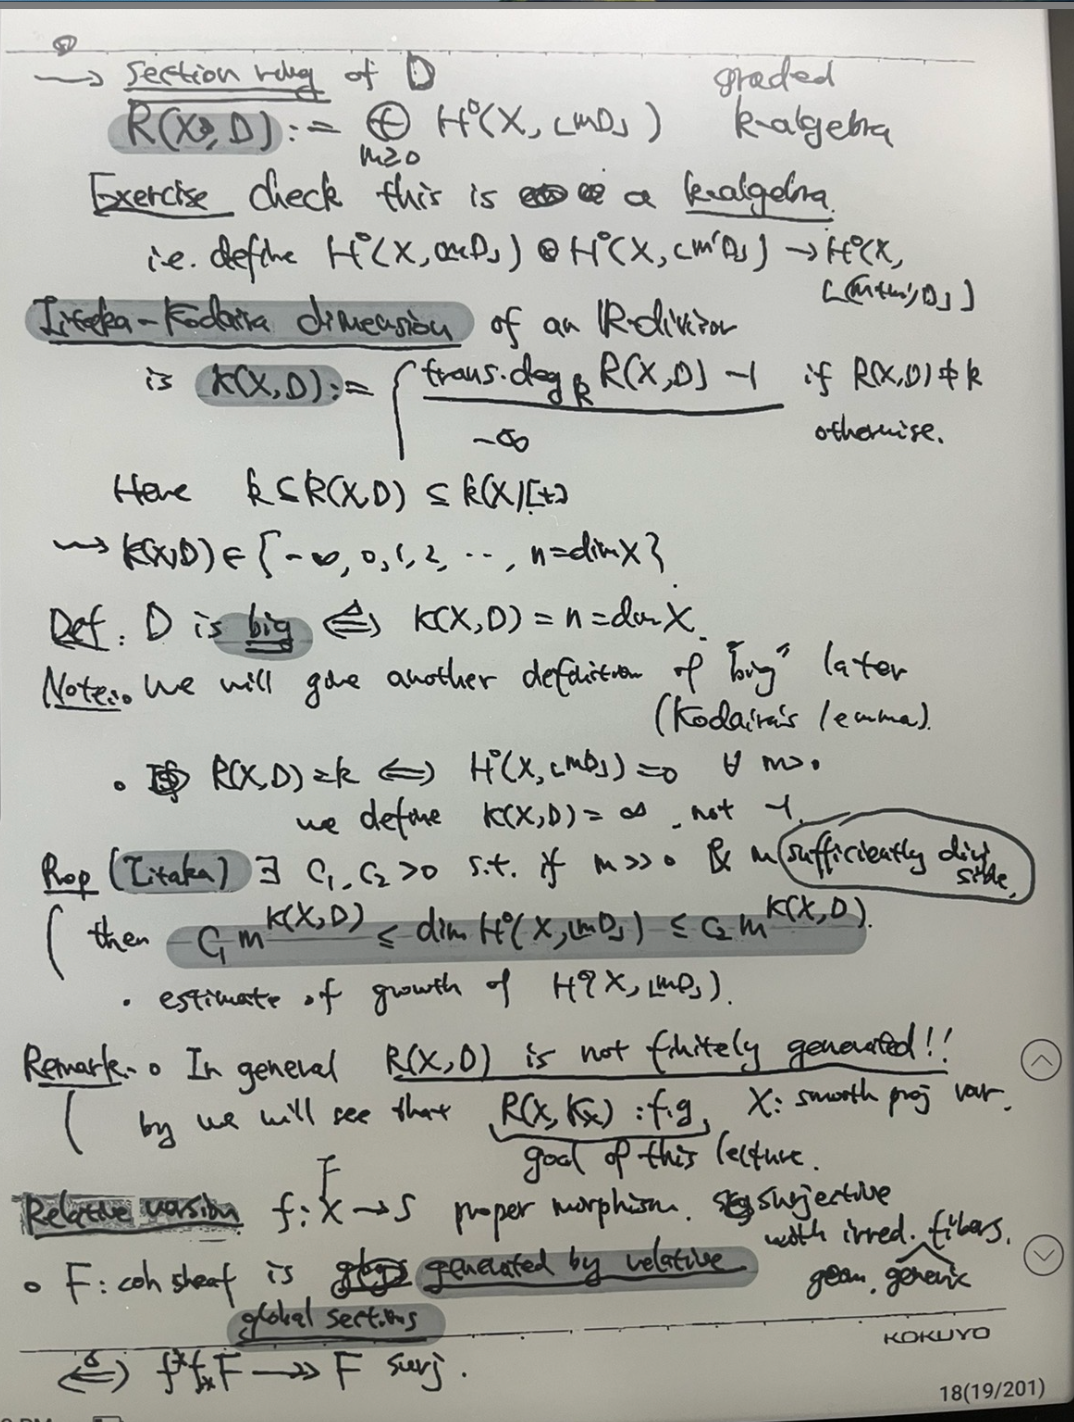 → section ring of D graded
R(X, D) := ⊕ H⁰(X, ⌊mD⌋) k-algebra
m≥0
Exercise check this is a k-algebra.
i.e. define H⁰(X, ⌊mD⌋) ⊗ H⁰(X, ⌊m'D⌋) → H⁰(X,
⌊(m+m')D⌋)
Iitaka-Kodaira dimension of an R-divisor
is κ(X, D) := { trans.deg k R(X, D) -1 if R(X, D) ≠ k
-∞ otherwise.
Here k ⊆ R(X, D) ⊆ k(X)[t]
⇝ κ(X, D) ∈ {-∞, 0, 1, 2, ..., n=dim X}.
Def. D is big ⇔ κ(X, D) = n = dim X.
Note: we will give another definition of "big" later
(Kodaira's lemma).
• R(X, D) = k ⇔ H⁰(X, ⌊mD⌋) = 0 ∀ m>0
we define κ(X, D) = ∞, not -1.
Prop (Iitaka) ∃ C₁, C₂ >0 s.t. if m>>0 & m sufficiently divi
sible.
then C₁ m^κ(X, D) ≤ dim H⁰(X, ⌊mD⌋) ≤ C₂ m^κ(X, D).
• estimate of growth of H⁰(X, ⌊mD⌋).
Remark. • In general R(X, D) is not finitely generated!!
by we will see that R(X, Kx) : f.g, X: smooth proj var.
goal of this lecture.
F
Relative version f: X → S proper morphism. surjective
with irred. fibers.
geom. generic
• F: coh sheaf is generated by relative
global sections
⇔ f*f*F ↠ F surj.
KOKUYO
18(19/201)